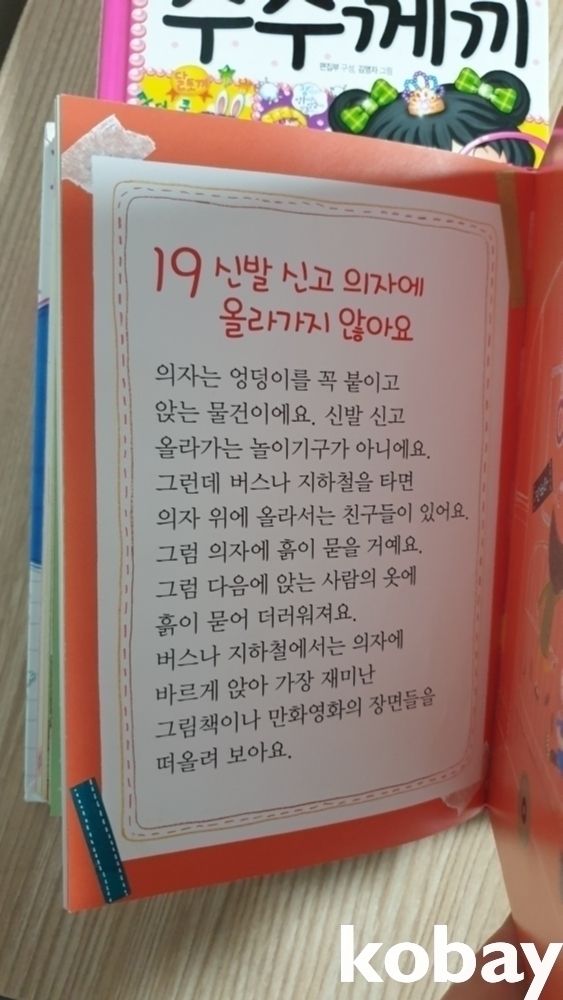 수수께끼
편집부 구성, 김명자 그림
19 신발 신고 의자에
올라가지 않아요
의자는 엉덩이를 꼭 붙이고
앉는 물건이에요. 신발 신고
올라가는 놀이기구가 아니에요.
그런데 버스나 지하철을 타면
의자 위에 올라서는 친구들이 있어요.
그럼 의자에 흙이 묻을 거예요.
그럼 다음에 앉는 사람의 옷에
흙이 묻어 더러워져요.
버스나 지하철에서는 의자에
바르게 앉아 가장 재미난
그림책이나 만화영화의 장면들을
떠올려 보아요.
kobay